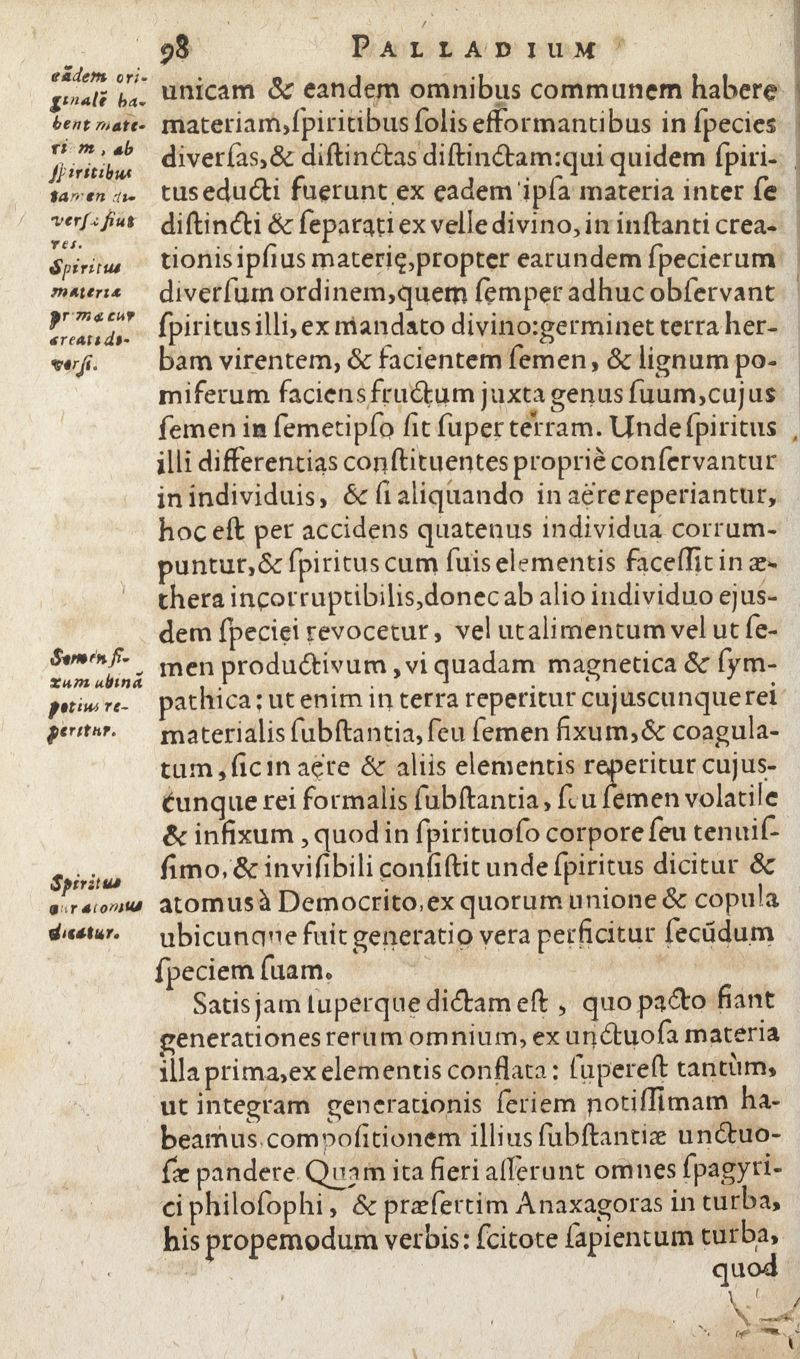 98 PALLADIUM
eãdem ori-
ginalẽ ha-
bent mate-
riã m, ab
spiritibus
tamen di-
versæ fiut
res.
Spiritus
materia
creati di-
versi.
unicam & eandem omnibus communem habere
materiam,ſpiritibus ſolis efformantibus in ſpecies
diverſas,& diſtinctas diſtinctam:qui quidem ſpiri-
tus educti fuerunt ex eadem ipſa materia inter ſe
diſtincti & ſeparati ex velle divino, in inſtanti crea-
tionis ipſius materię,propter earundem ſpecierum
diverſum ordinem,quem ſemper adhuc obſervant
ſpiritus illi, ex mandato divino:germinet terra her-
bam virentem, & facientem ſemen, & lignum po-
miferum faciens fructum juxta genus ſuum,cujus
ſemen in ſemetipſo ſit ſuper terram. Unde ſpiritus
illi differentias conſtituentes propriè conſervantur
in individuis, & ſi aliquando in aëre reperiantur,
hoc eſt per accidens quatenus individua corrum-
puntur,& ſpiritus cum ſuis elementis faceſſit in æ-
thera incorruptibilis,donec ab alio individuo ejus-
dem ſpeciei revocetur, vel ut alimentum vel ut ſe-
Semen fi-
xum ubinã
potius re-
peritur.
men productivum, vi quadam magnetica & ſym-
pathica: ut enim in terra reperitur cujuscunque rei
materialis ſubſtantia, ſeu ſemen fixum,& coagula-
tum, ſic in aëre & aliis elementis reperitur cujus-
cunque rei formalis ſubſtantia, ſeu ſemen volatile
& infixum, quod in ſpirituoſo corpore ſeu tenuiſ-
ſimo, & inviſibili conſiſtit unde ſpiritus dicitur &
Spiritus
cur atomus
dicatur.
atomus à Democrito, ex quorum unione & copula
ubicunque fuit generatio vera perficitur ſecũdum
ſpeciem ſuam.
Satis jam ſuperque dictam eſt, quo pacto fiant
generationes rerum omnium, ex unctuoſa materia
illa prima,ex elementis conflata: ſupereſt tantùm,
ut integram generationis ſeriem notiſſimam ha-
beamus compoſitionem illius ſubſtantiæ unctuo-
ſæ pandere. Quam ita fieri aſſerunt omnes ſpagyri-
ci philoſophi, & præſertim Anaxagoras in turba,
his propemodum verbis: ſcitote ſapientum turba,
quod